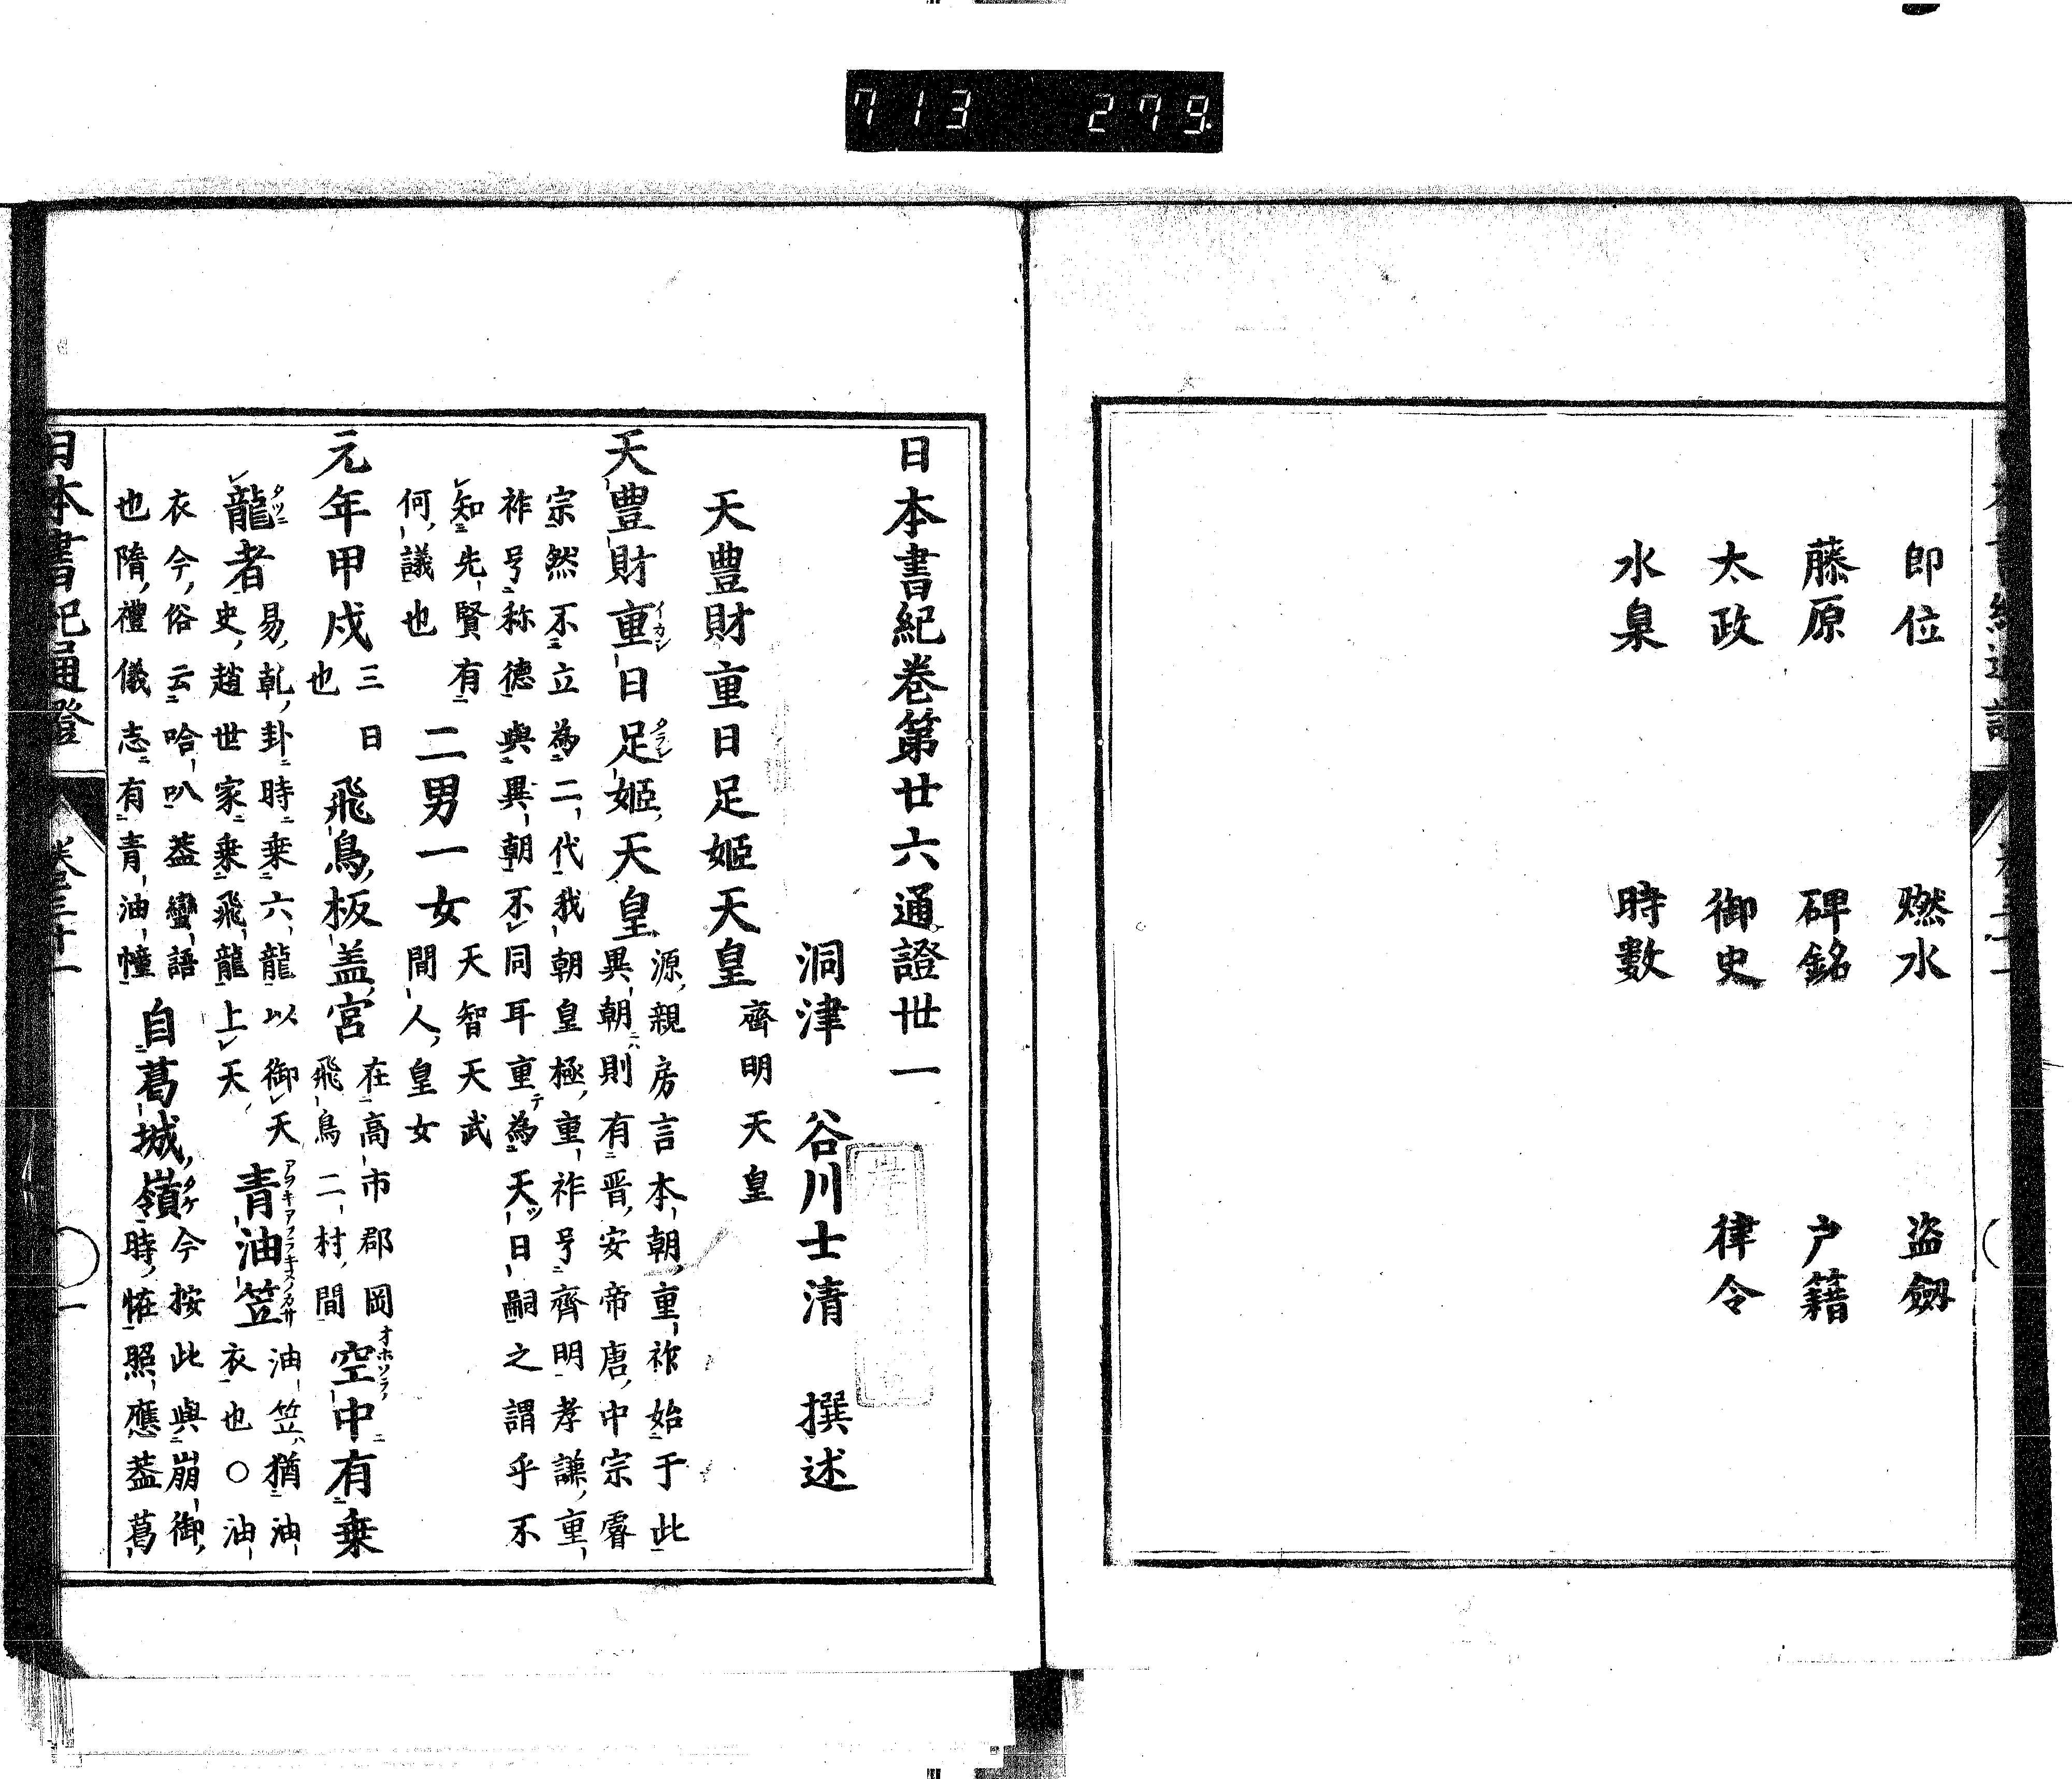 713 279
即位 燃水 盗劔
藤原 碑銘 戸籍
太政 御史 律令
水臬 時數
日本書紀卷第廿六通證卅一
洞津 谷川士清 撰述
天豊財重日足姫天皇 齊明天皇
天豊財重日足姫天皇 源親房言本朝重祚始于此
異朝則有晋安帝唐中宗睿
宗然不立為二代我朝皇極重祚号齊明孝謙重
祚号称德與異朝不同耳重為天日嗣之謂乎不
知先賢有
何議也
二男一女 天智天武
間人皇女
元年甲戌 三日
也
飛鳥板盖宮 在高市郡岡
飛鳥二村間
空中有乗
龍者 易乾卦時乗六龍以御天
史趙世家乗飛龍上天
青油笠 油笠猶油
衣也○油
衣今俗云哈叭葢蠻語
也隋禮儀志有青油幢
自葛城嶺 今按此與崩御
時恠照應葢葛
日本書紀通證 卷三十一 一